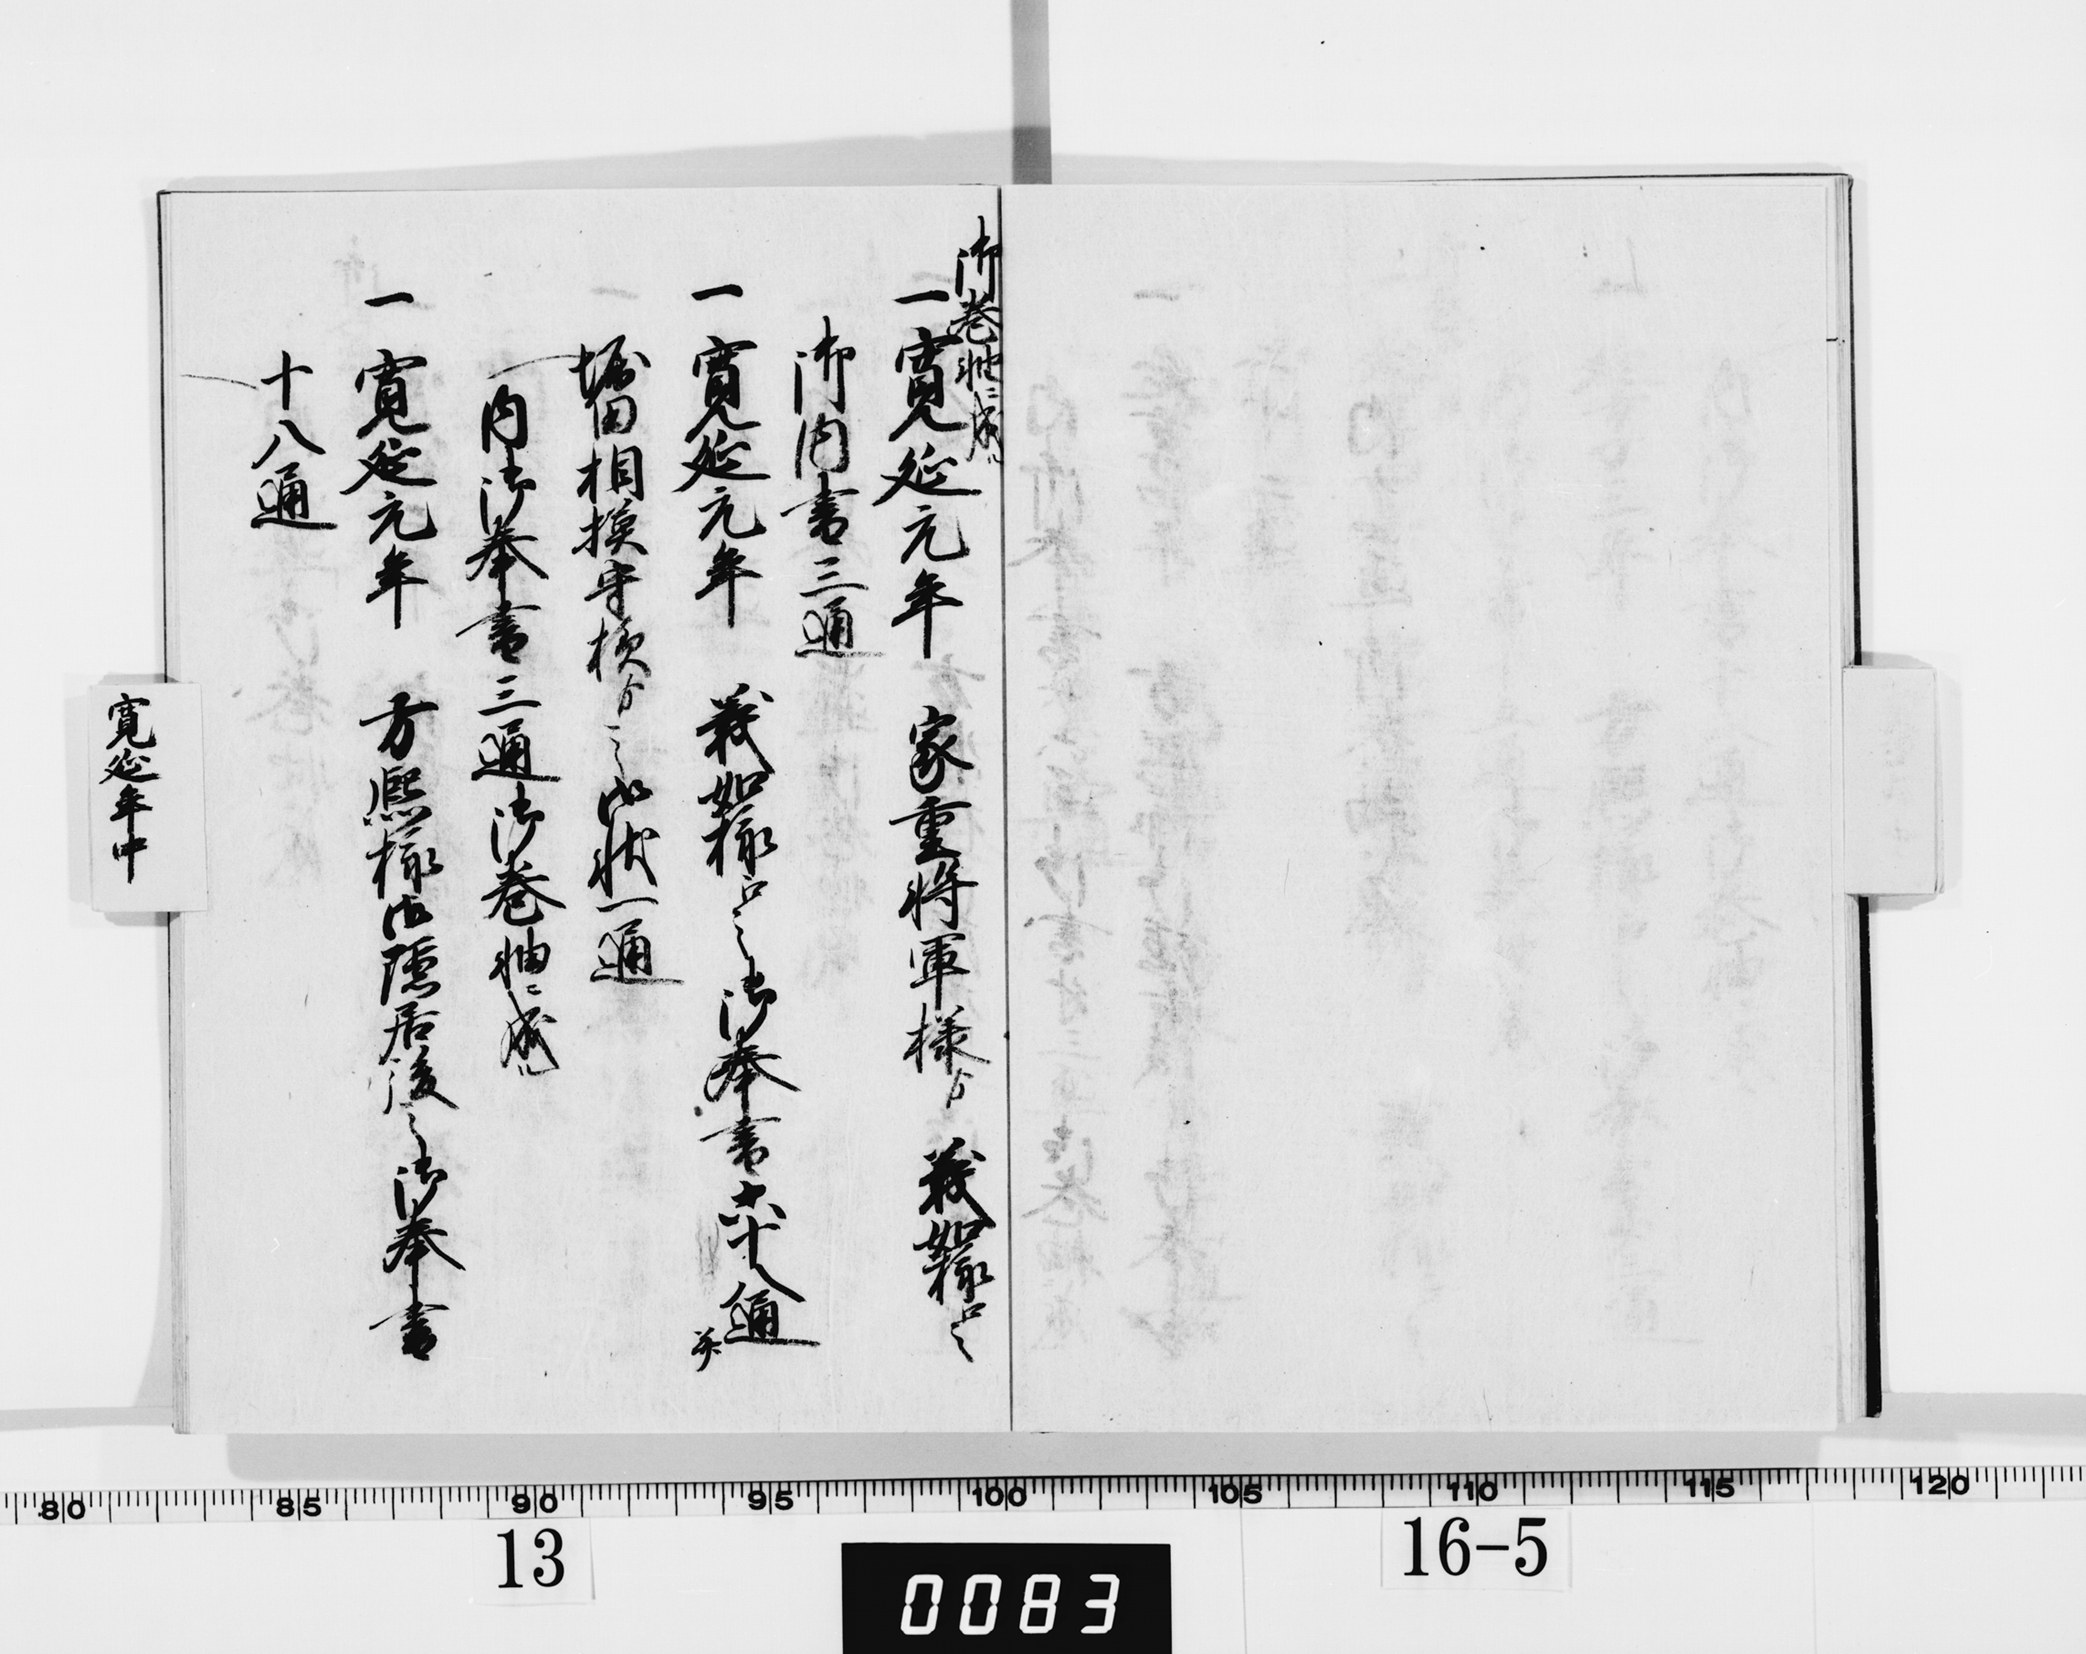 御巻軸ニ成ル
一寛延元年　家重将軍様ゟ　義如様江之
御内書三通
一寛延元年　義如様江之御奉書六十八通
并
堀田相模守様ゟ之御状一通
内御奉書三通御巻軸ニ成ル
一寛延元年　方熈様御隠居後之御奉書
十八通
寛延年中
80 85 90 95 100 105 110 115 120
13
16-5
0083